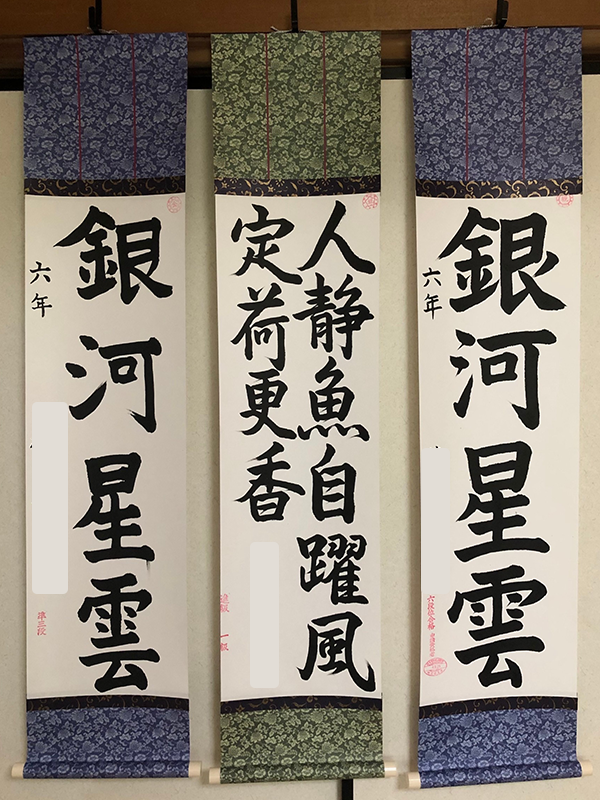 銀河星雲
六年
六段位合格
人静魚自躍風
定荷更香
一級
銀河星雲
六年
準三段